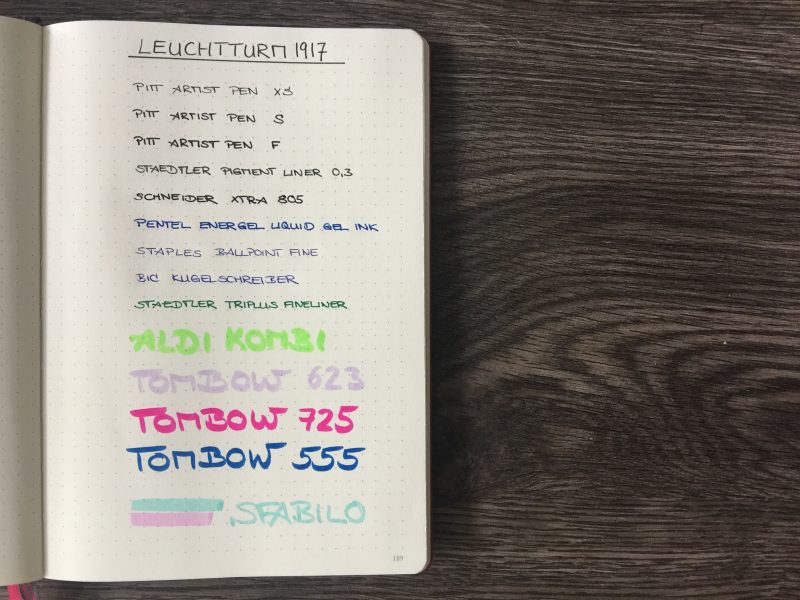 LEUCHTTURM 1917
PITT ARTIST PEN XS
PITT ARTIST PEN S
PITT ARTIST PEN F
STAEDTLER PIGMENT LINER 0,3
SCHNEIDER XTRA 805
PENTEL ENERGEL LIQUID GEL INK
STAPLES BALLPOINT FINE
BIC KUGELSCHREIBER
STAEDTLER TRIPLUS FINELINER
ALDI KOMBI
TOMBOW 623
TOMBOW 725
TOMBOW 555
STABILO
189